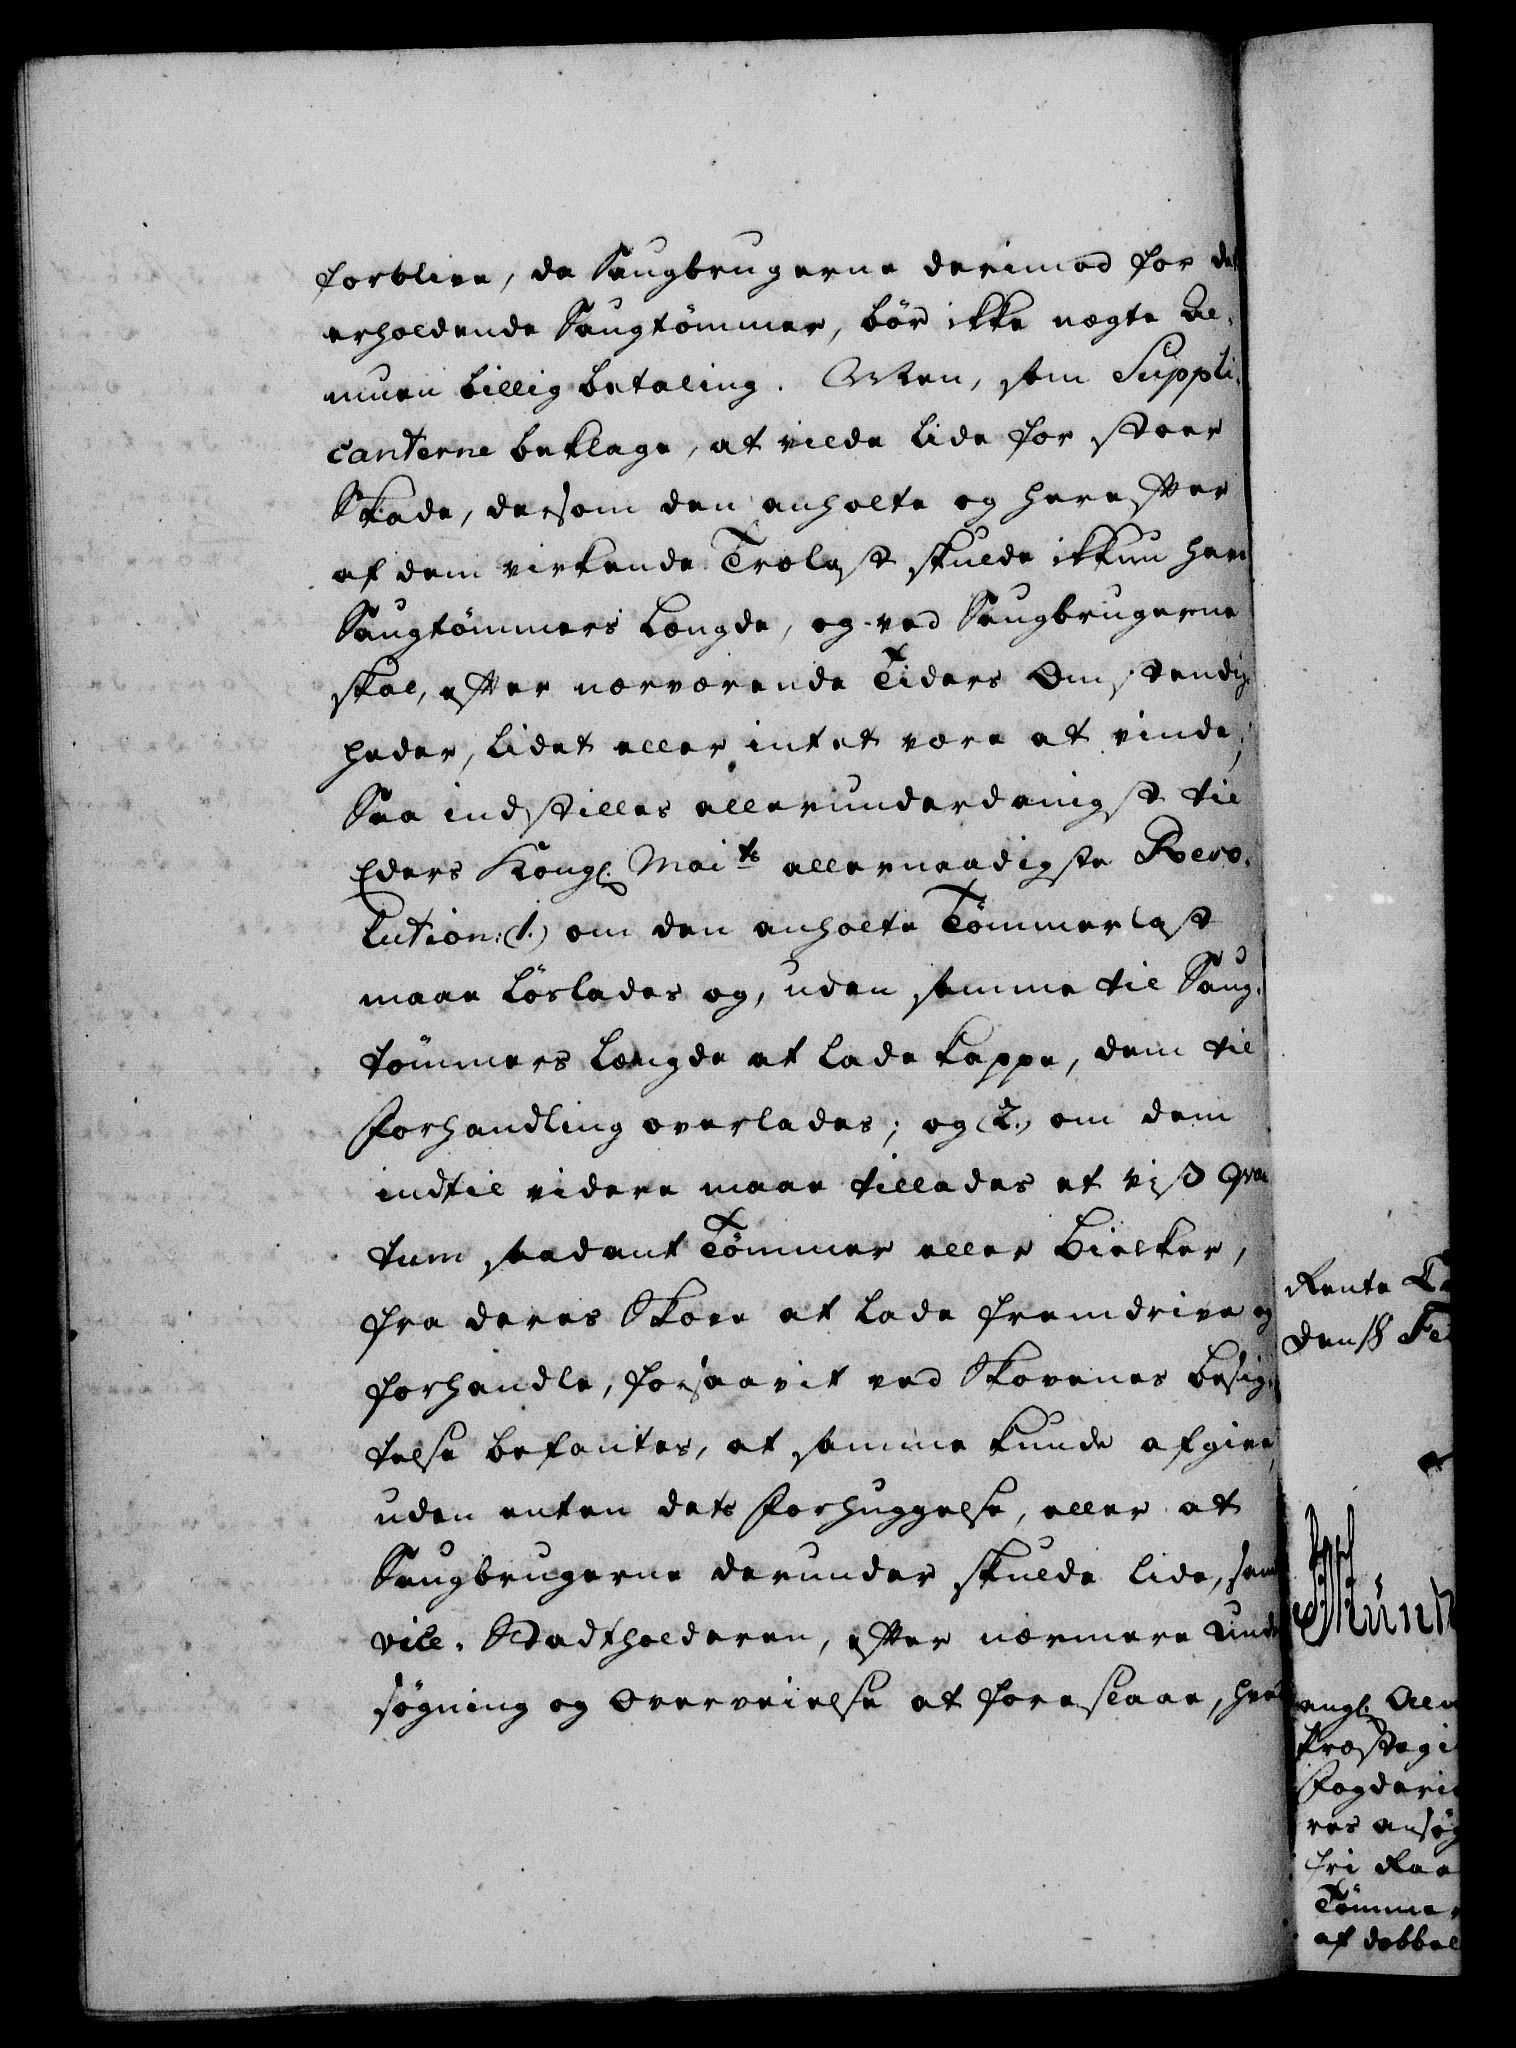 forblive, da Saugbrugerne derimod for det
erholdende Saugtömmer, bör ikke nægte Al-
muen billig betaling. Men, som Suppli-
canterne beklage, at vilde lide for stoer
Skade, dersom den anholte og herefter
af dem virkende Trælast skulde ikkun have
Saugtömmers Længde, og ved Saugbrugerne
skal, efter nærværende Tiders Omstændig-
heder, lidet eller intet være at vinde;
Saa indstilles allerunderdanigst til
Eders Kongl. Maits allernaadigste Reso-
lution: (1.) om den anholte Tömmerlast
maae löslades og, uden samme til Saug-
tömmers Længde at lade kappe, dem til
Forhandling overlades; og (2.) om dem
indtil videre maae tillades et vist Qvan
tum saadant Tömmer eller Bielker,
fra deres Skove at lade fremdrive og
forhandle, forsaavit ved Skovenes Besig-
telse befantes, at samme kunde afgive,
uden enten dets Forhuggelse, eller at
Saugbrugerne derunder skulde lide, samt
vice-Stadtholderen, efter nærmere Under
søgning og Overveielse at foreslaae, hvor
Rente Ca
den 18 Fe
Münn
angl. Alm
Præstegi
Fogderie
res ansög
fri Raa
Tömmer
af dobbel